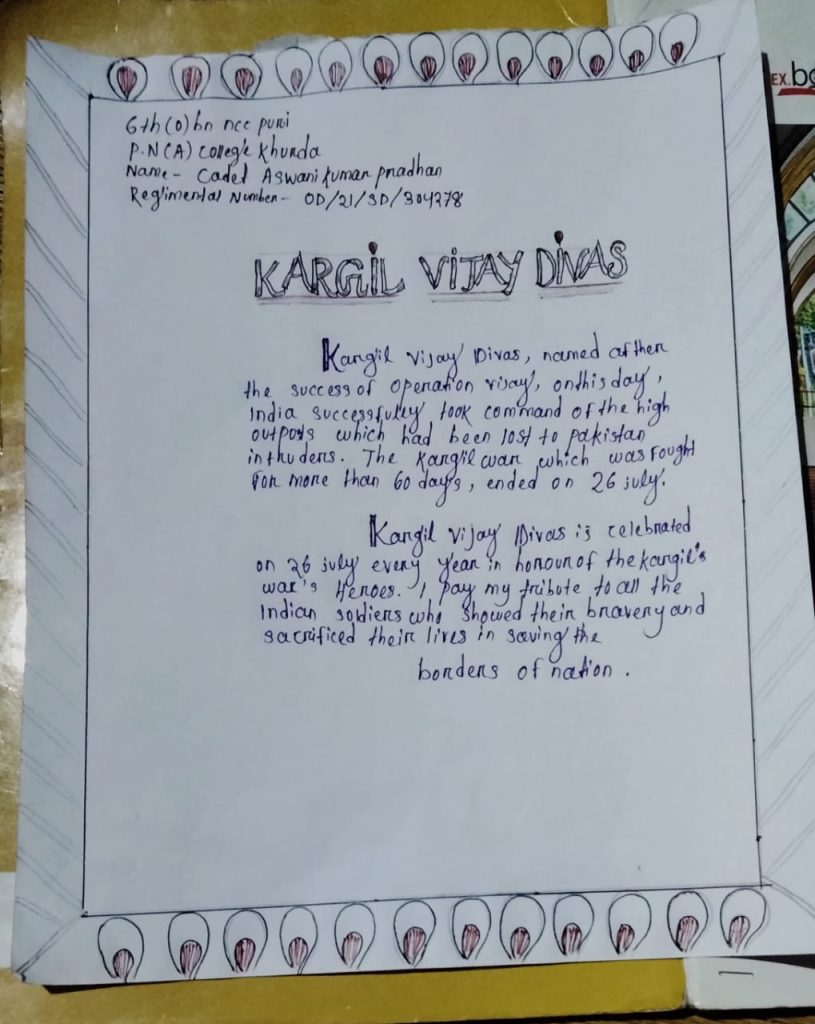 6th(O)bn ncc puri
P.N(A) college Khurda
Name - Cadet Aswani kumar pradhan
Regimental Number - OD/21/SD/304278
KARGiL ViJAY DiVAS
Kargil vijay Divas, named after
the success of operation vijay, on this day,
India successfully took command of the high
outposts which had been lost to pakistan
intruders. The Kargil war, which was Fought
For more than 60 days, ended on 26 july.
Kargil vijay Divas is celebrated
on 26 july every year in honour of the kargil's
war's Heroes. I pay my tribute to all the
Indian soldiers who showed their bravery and
sacrificed their lives in saving the
borders of nation.
EX.bo